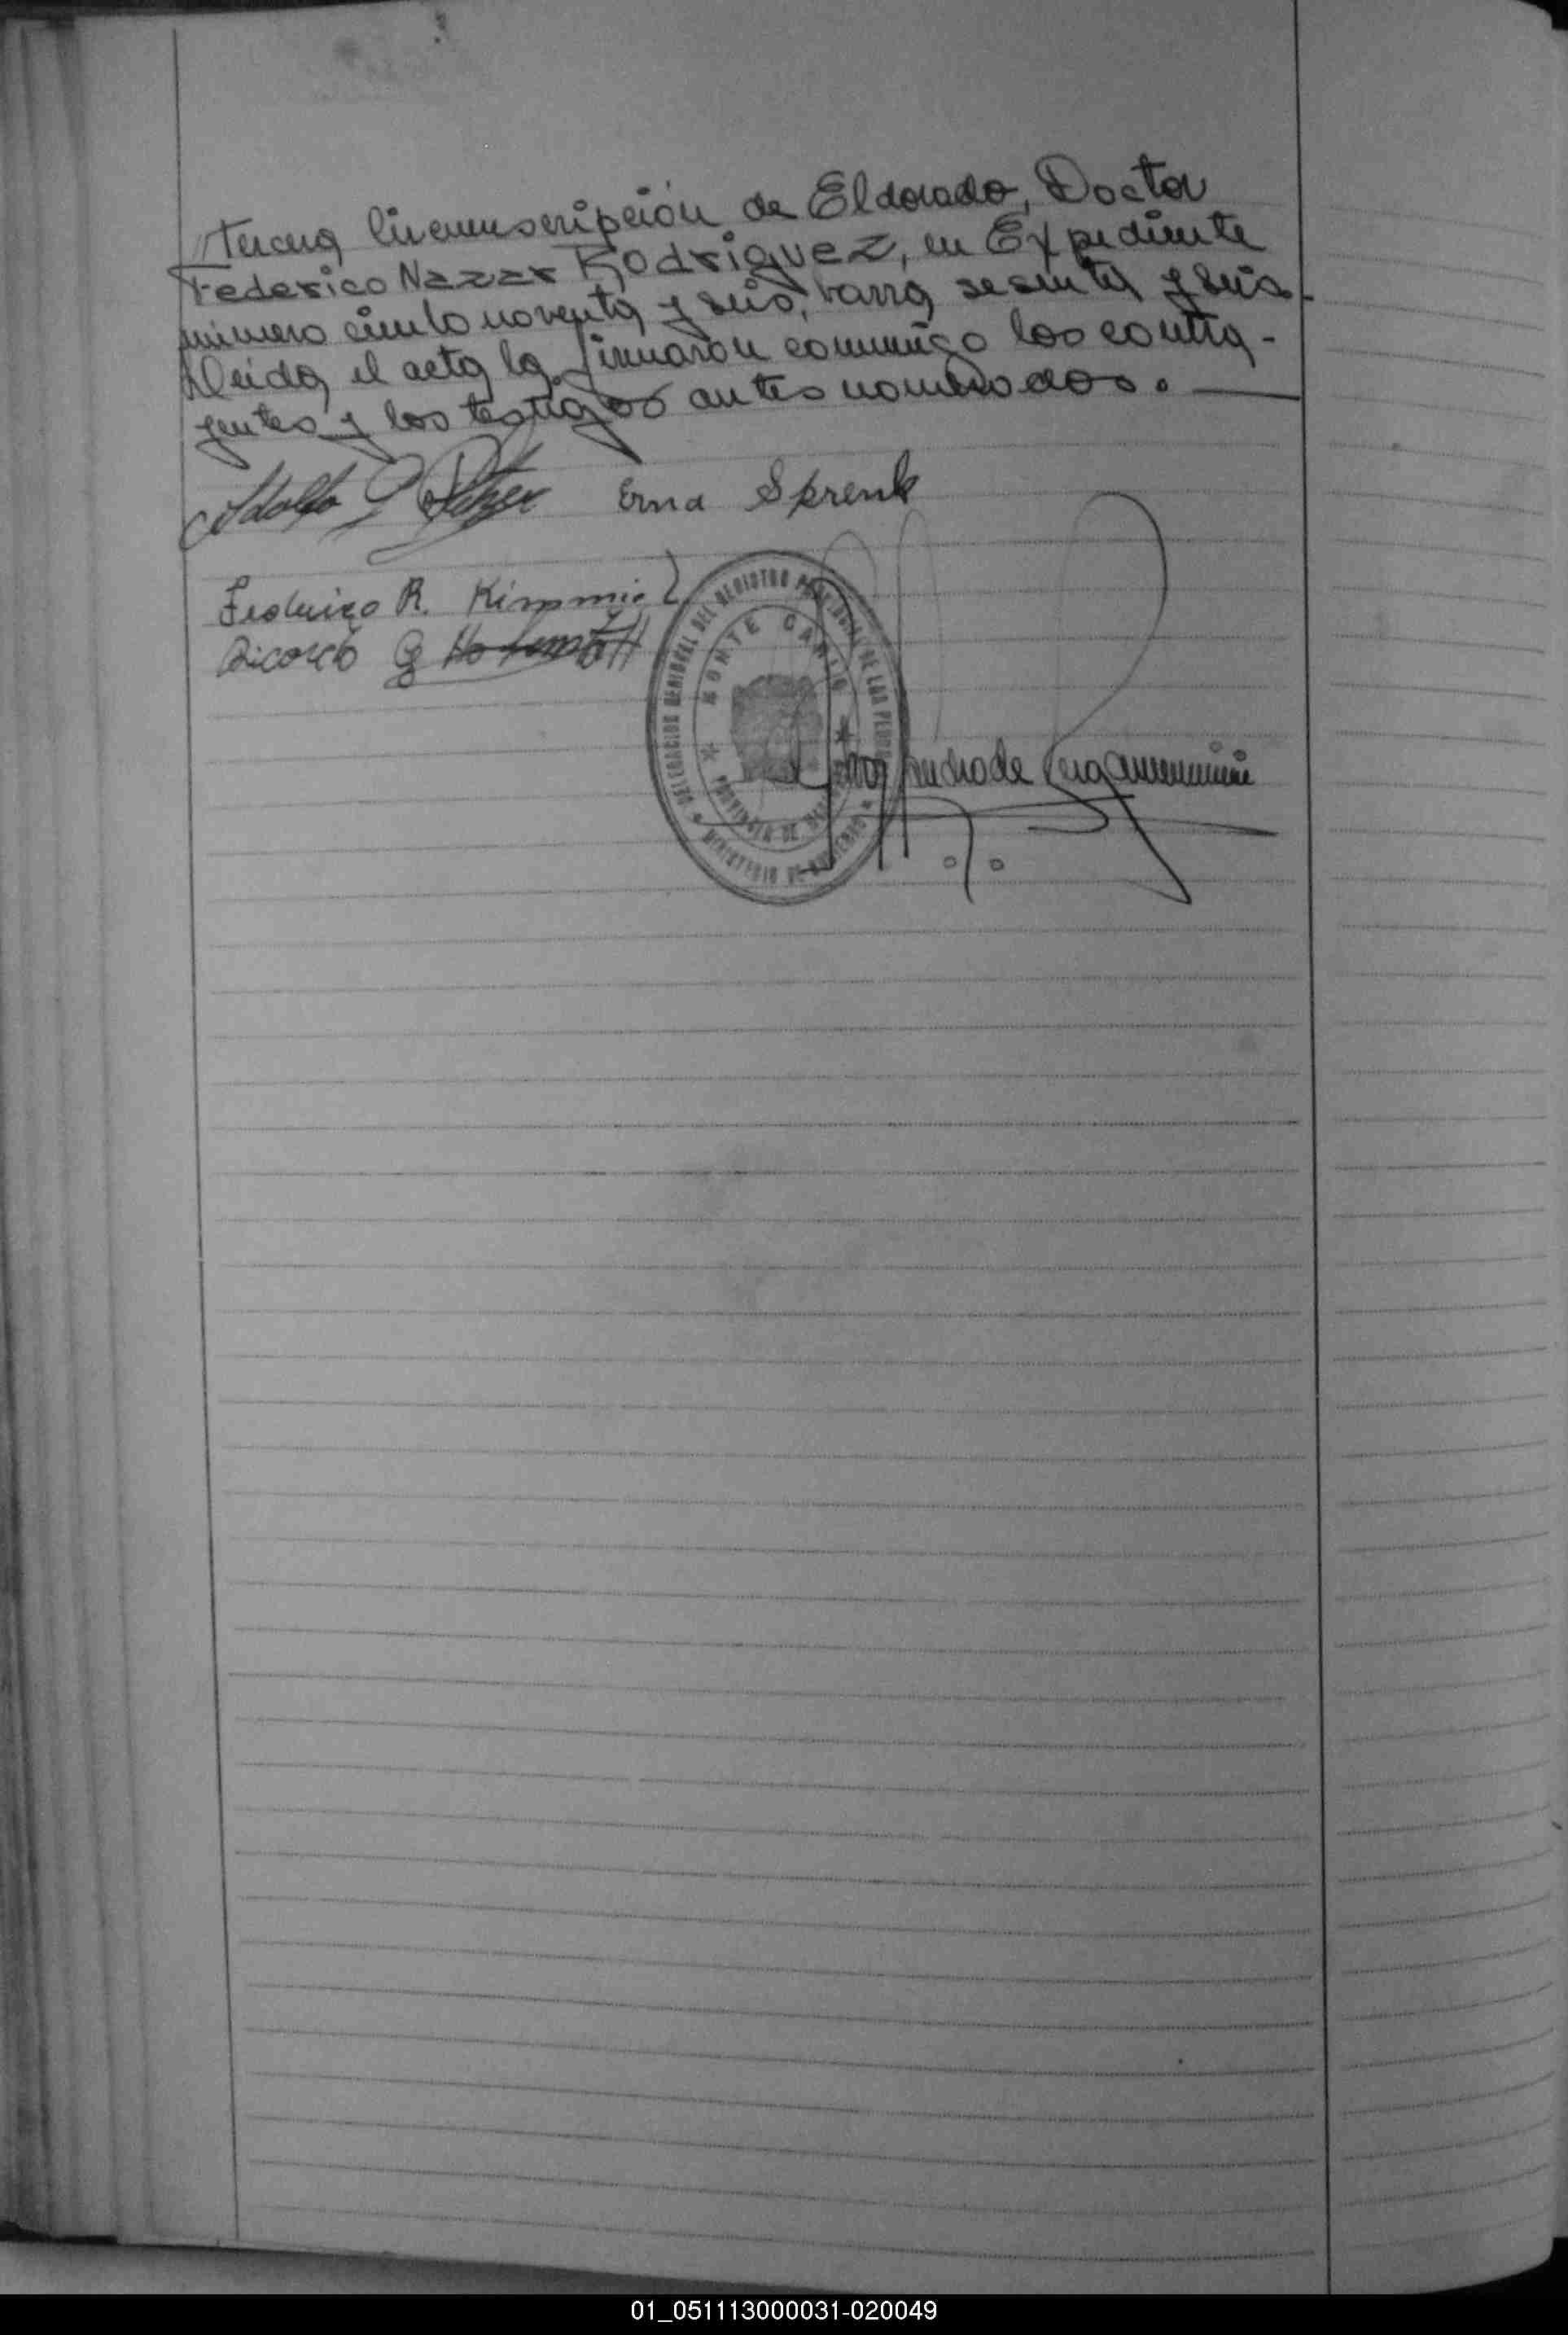 tercera Circunscripción de Eldorado, Doctor
Federico Nazar Rodriguez, en Expediente
número ciento noventa y seis, barra sesenta y seis.
Leida el acta la firmaron conmigo los contra-
yentes y los testigos antes nombrados.
Adolfo
Erna Sprenk
Federico R. Kimmel
Ricardo G
DELEGACION DEL REGISTRO PROVINCIAL DE LAS PERSONAS
MONTE CARLO
PROVINCIA DE
MINISTERIO DE GOBIERNO
Andrade
01_051113000031-020049